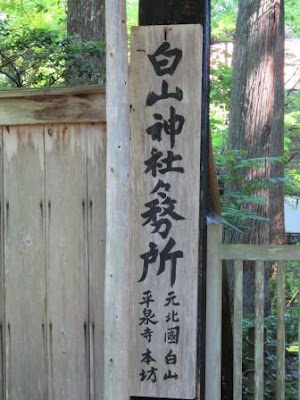 白山神社々務所
元北國白山
平泉寺本坊